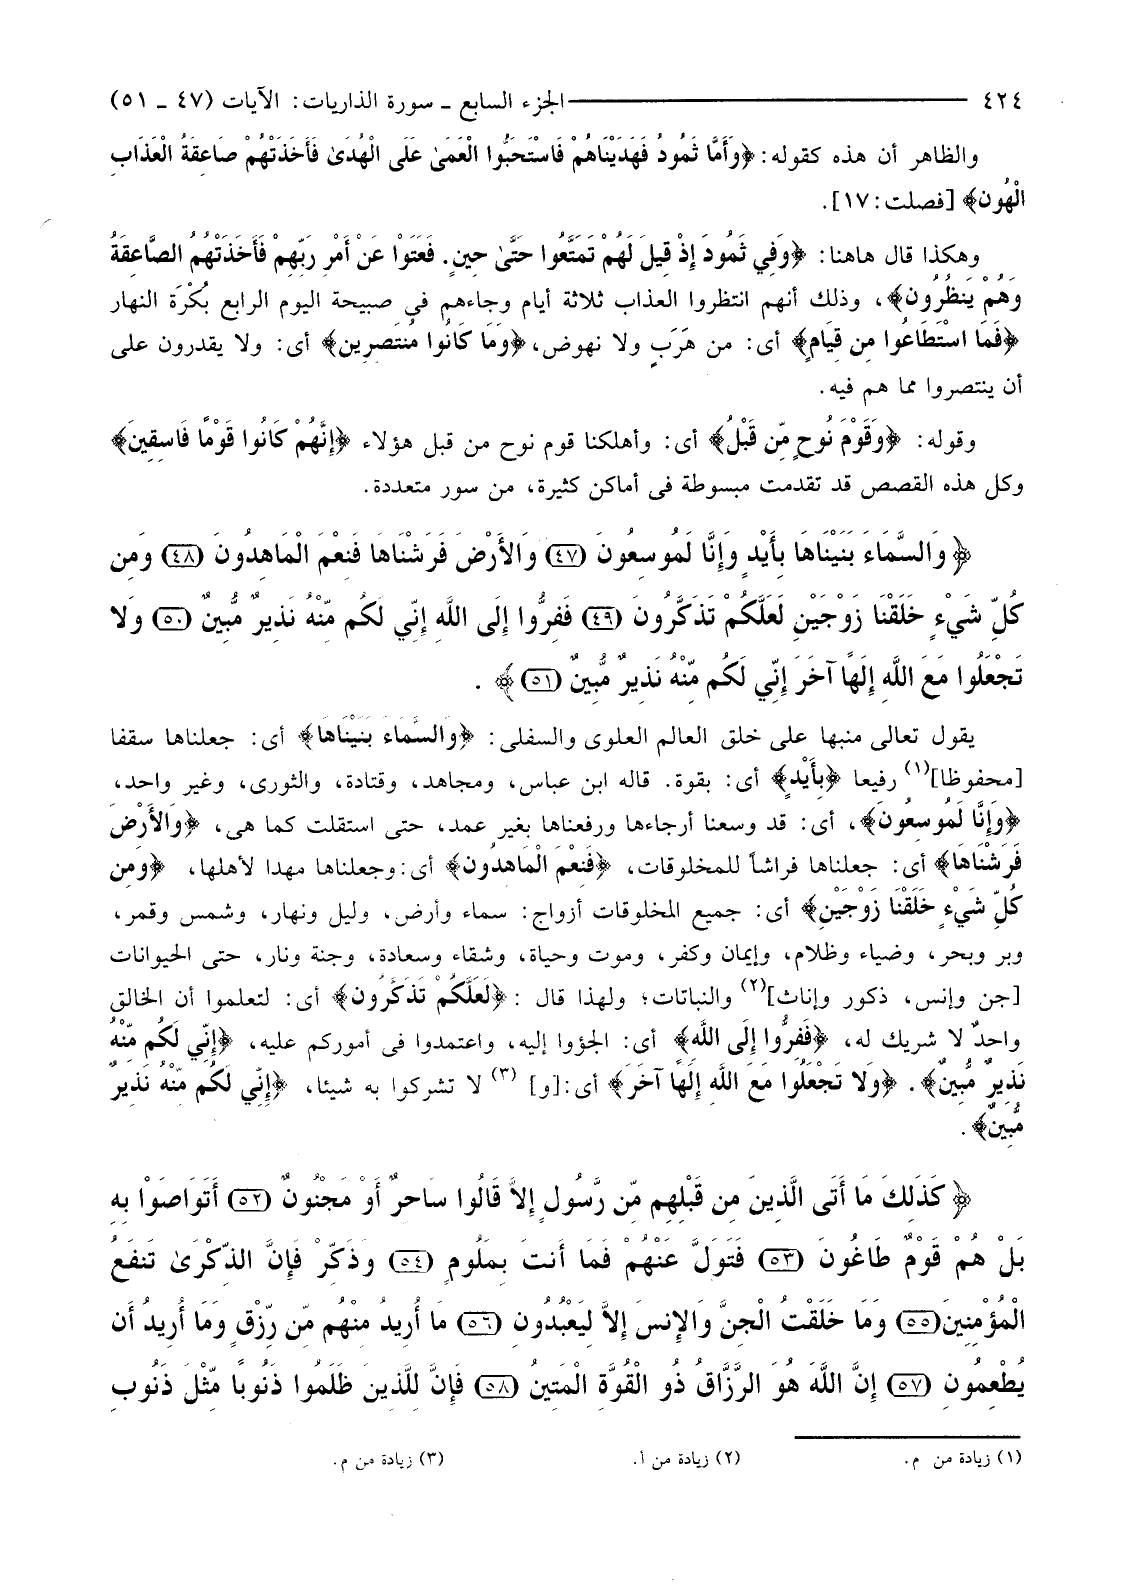 ٤٢٤ الجزء السابع ـ سورة الذاريات: الآيات (٤٧ ـ ٥١)
والظاهر أن هذه كقوله: ﴿وَأَمَّا ثَمُودُ فَهَدَيْنَاهُمْ فَاسْتَحَبُّوا الْعَمَىٰ عَلَى الْهُدَىٰ فَأَخَذَتْهُمْ صَاعِقَةُ الْعَذَابِ
الْهُونِ﴾ [فصلت: ١٧].
وهكذا قال هاهنا: ﴿وَفِي ثَمُودَ إِذْ قِيلَ لَهُمْ تَمَتَّعُوا حَتَّىٰ حِينٍ. فَعَتَوْا عَنْ أَمْرِ رَبِّهِمْ فَأَخَذَتْهُمُ الصَّاعِقَةُ
وَهُمْ يَنظُرُونَ﴾، وذلك أنهم انتظروا العذاب ثلاثة أيام وجاءهم في صبيحة اليوم الرابع بُكْرَة النهار
﴿فَمَا اسْتَطَاعُوا مِن قِيَامٍ﴾ أى: من هَرَبٍ ولا نهوض، ﴿وَمَا كَانُوا مُنتَصِرِينَ﴾ أى: ولا يقدرون على
أن ينتصروا مما هم فيه.
وقوله: ﴿وَقَوْمَ نُوحٍ مِّن قَبْلُ﴾ أى: وأهلكنا قوم نوح من قبل هؤلاء ﴿إِنَّهُمْ كَانُوا قَوْمًا فَاسِقِينَ﴾
وكل هذه القصص قد تقدمت مبسوطة فى أماكن كثيرة، من سور متعددة.
﴿وَالسَّمَاءَ بَنَيْنَاهَا بِأَيْدٍ وَإِنَّا لَمُوسِعُونَ (٤٧) وَالأَرْضَ فَرَشْنَاهَا فَنِعْمَ الْمَاهِدُونَ (٤٨) وَمِن
كُلِّ شَيْءٍ خَلَقْنَا زَوْجَيْنِ لَعَلَّكُمْ تَذَكَّرُونَ (٤٩) فَفِرُّوا إِلَى اللَّهِ إِنِّي لَكُم مِّنْهُ نَذِيرٌ مُّبِينٌ (٥٠) وَلا
تَجْعَلُوا مَعَ اللَّهِ إِلَهًا آخَرَ إِنِّي لَكُم مِّنْهُ نَذِيرٌ مُّبِينٌ (٥١)﴾.
يقول تعالى منبها على خلق العالم العلوى والسفلى: ﴿وَالسَّمَاءَ بَنَيْنَاهَا﴾ أى: جعلناها سقفا
[محفوظا](١) رفيعا ﴿بِأَيْدٍ﴾ أى: بقوة. قاله ابن عباس، ومجاهد، وقتادة، والثورى، وغير واحد،
﴿وَإِنَّا لَمُوسِعُونَ﴾، أى: قد وسعنا أرجاءها ورفعناها بغير عمد، حتى استقلت كما هى، ﴿وَالأَرْضَ
فَرَشْنَاهَا﴾ أى: جعلناها فراشاً للمخلوقات، ﴿فَنِعْمَ الْمَاهِدُونَ﴾ أى: وجعلناها مهدا لأهلها، ﴿وَمِن
كُلِّ شَيْءٍ خَلَقْنَا زَوْجَيْنِ﴾ أى: جميع المخلوقات أزواج: سماء وأرض، وليل ونهار، وشمس وقمر،
وبر وبحر، وضياء وظلام، وإيمان وكفر، وموت وحياة، وشقاء وسعادة، وجنة ونار، حتى الحيوانات
[جن وإنس، ذكور وإناث](٢) والنباتات؛ ولهذا قال :﴿لَعَلَّكُمْ تَذَكَّرُونَ﴾ أى: لتعلموا أن الخالق
واحدٌ لا شريك له، ﴿فَفِرُّوا إِلَى اللَّهِ﴾ أى: الجؤوا إليه، واعتمدوا فى أموركم عليه، ﴿إِنِّي لَكُم مِّنْهُ
نَذِيرٌ مُّبِينٌ﴾. ﴿وَلا تَجْعَلُوا مَعَ اللَّهِ إِلَهًا آخَرَ﴾ أى:[و] (٣) لا تشركوا به شيئا، ﴿إِنِّي لَكُم مِّنْهُ نَذِيرٌ
مُّبِينٌ﴾.
﴿كَذَلِكَ مَا أَتَى الَّذِينَ مِن قَبْلِهِم مِّن رَّسُولٍ إِلاَّ قَالُوا سَاحِرٌ أَوْ مَجْنُونٌ (٥٢) أَتَوَاصَوْا بِهِ
بَلْ هُمْ قَوْمٌ طَاغُونَ (٥٣) فَتَوَلَّ عَنْهُمْ فَمَا أَنتَ بِمَلُومٍ (٥٤) وَذَكِّرْ فَإِنَّ الذِّكْرَىٰ تَنفَعُ
الْمُؤْمِنِينَ (٥٥) وَمَا خَلَقْتُ الْجِنَّ وَالإِنسَ إِلاَّ لِيَعْبُدُونِ (٥٦) مَا أُرِيدُ مِنْهُم مِّن رِّزْقٍ وَمَا أُرِيدُ أَن
يُطْعِمُونِ (٥٧) إِنَّ اللَّهَ هُوَ الرَّزَّاقُ ذُو الْقُوَّةِ الْمَتِينُ (٥٨) فَإِنَّ لِلَّذِينَ ظَلَمُوا ذَنُوبًا مِّثْلَ ذَنُوبِ
(١) زيادة من م. (٢) زيادة من أ. (٣) زيادة من م.